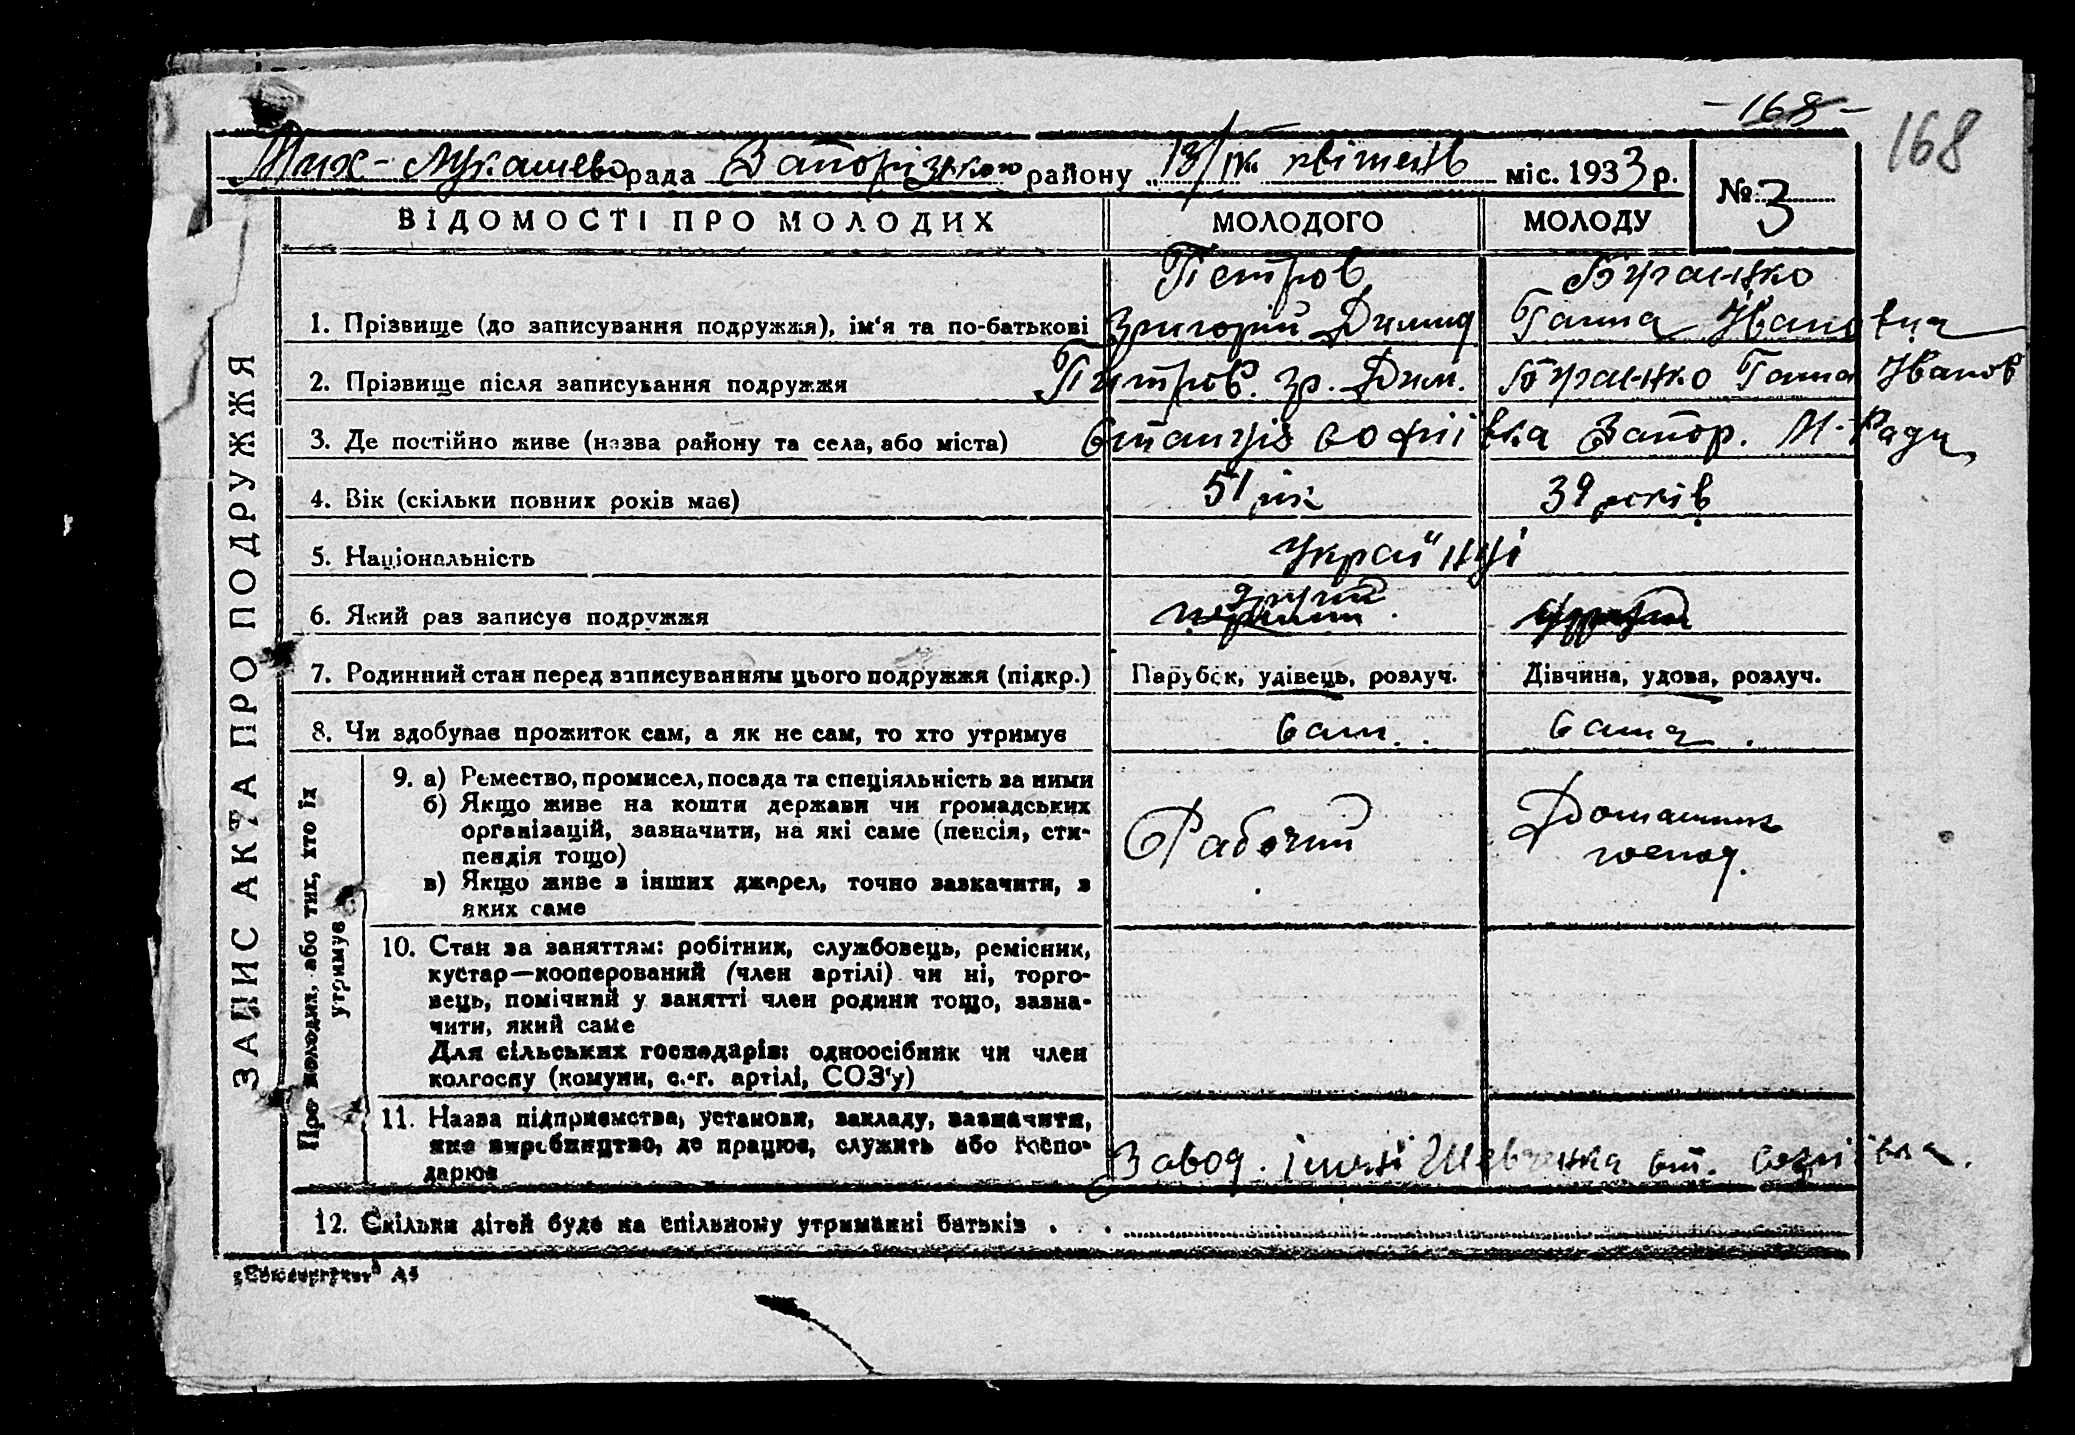 -168-
168
Мих-Лукашево рада Запорізького району „13/IV" квітень міс. 1933 р.
№ 3
ВІДОМОСТІ ПРО МОЛОДИХ МОЛОДОГО МОЛОДУ
ЗАПИС АКТА ПРО ПОДРУЖЖЯ
Петров
1. Прізвище (до записування подружжя), ім'я та по-батькові Григорій Димид Ганна Іванівна
2. Прізвище після записування подружжя Петров. гр. Дим. Ганна Іванов
3. Де постійно живе (назва району та села, або міста) Станція Софіївка Запор. М-Ради
4. Вік (скільки повних років має) 51 рік 39 років
5. Національність Україйнці
другий
6. Який раз записує подружжя перший
7. Родинний стан перед записуванням цього подружжя (підкр.) Парубок, удівець, розлуч. Дівчина, удова, розлуч.
8. Чи здобуває прожиток сам, а як не сам, то хто утримує Сам. Сама.
Про молодих, або тих, хто їх утримує
9. а) Ремество, промисел, посада та спеціяльність за ними
б) Якщо живе на кошти держави чи громадських
організацій, зазначити, на які саме (пенсія, сти-
пендія тощо)
в) Якщо живе з інших джерел, точно зазначити, з
яких саме
Рабочий
Домашнє
господ.
10. Стан за заняттям: робітник, службовець, ремісник,
кустар—кооперований (член артілі) чи ні, торго-
вець, помічний у занятті член родини тощо, зазна-
чити, який саме
Для сільських господарів: одноосібник чи член
колгоспу (комуни, с.-г. артілі, СОЗ'у)
11. Назва підприємства, установи, закладу, зазначити,
яке виробництво, де працює, служить або госпо-
дарює
Завод. імені Шевченка ст. Софіївка.
12. Скільки дітей буде на спільному утриманні батьків . .